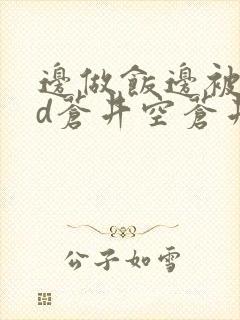 邊做飯邊被
d蒼井空蒼井
公子如雪